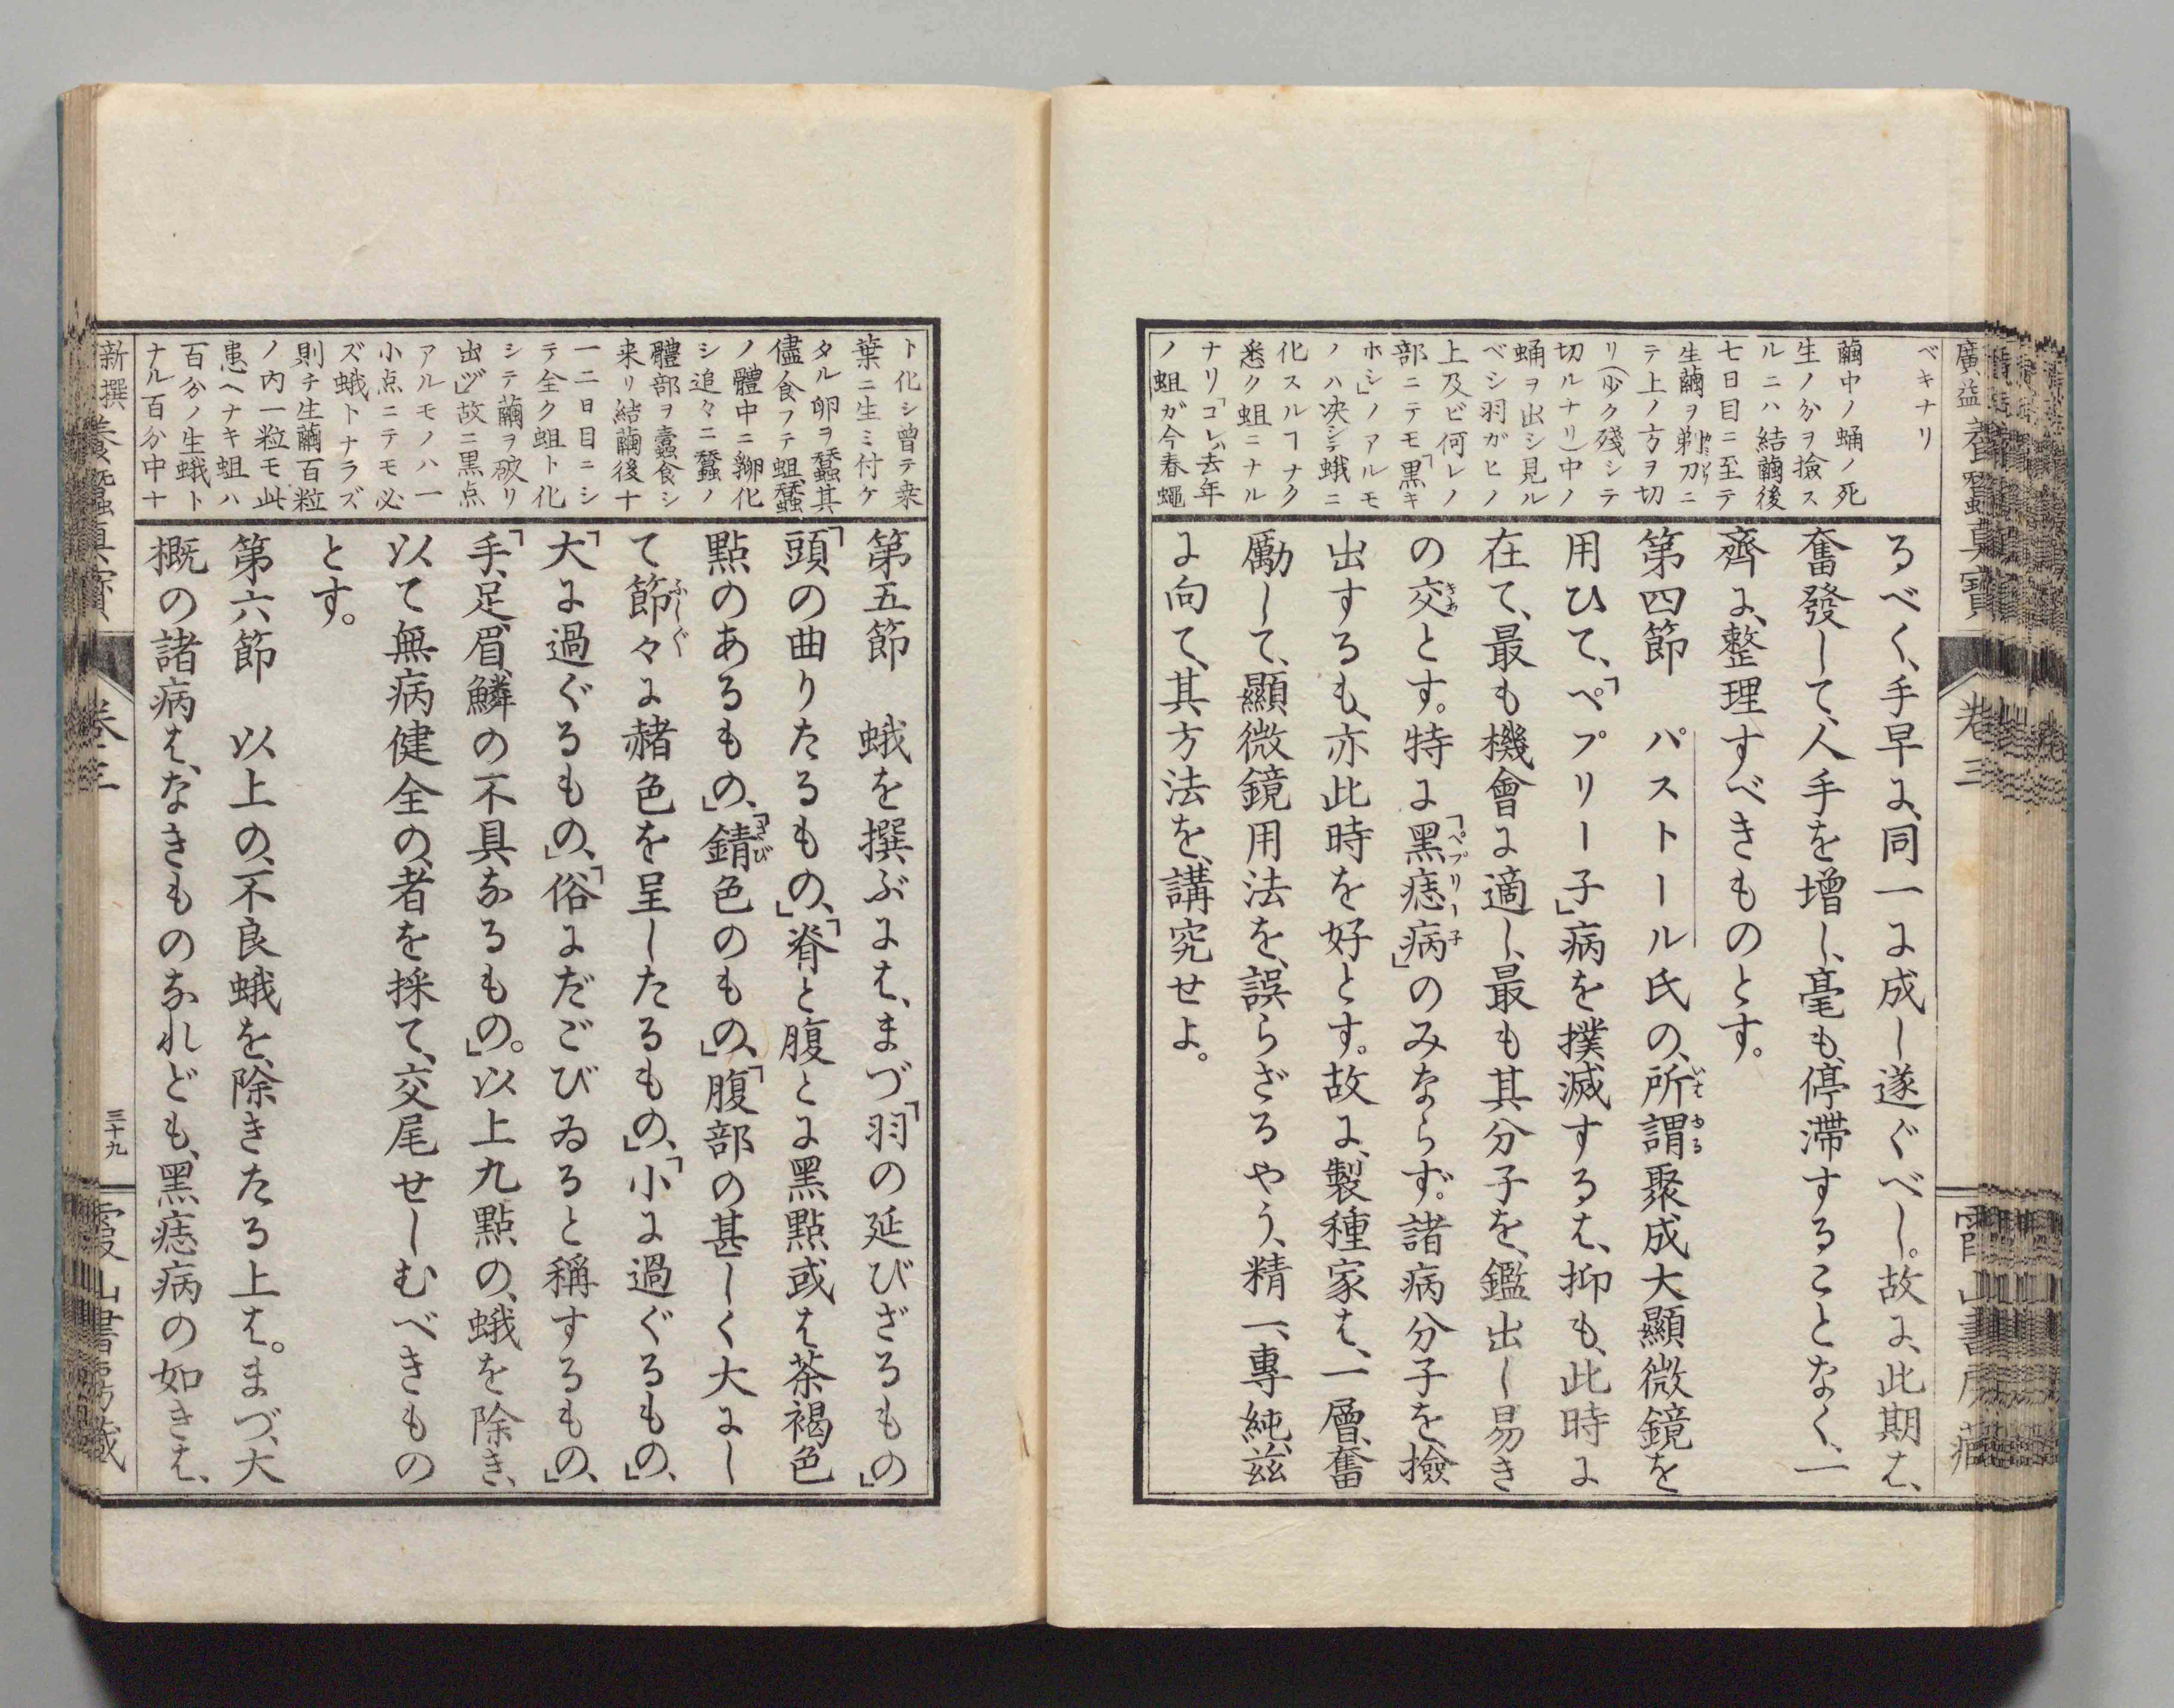 廣益
卷三
ベキナリ
繭中ノ蛹ノ死
生ノ分ヲ撿ス
ルニハ結繭後
七日目ニ至テ
生繭ヲ剃刀ニ
テ上ノ方ヲ切
リ(少ク殘シテ
切ルナリ)中ノ
蛹ヲ出シ見ル
ベシ羽ガヒノ
上及ビ何レノ
部ニテモ「黒キ
ホシ」ノアルモ
ノハ决シテ蛾ニ
化スルヿナク
悉ク蛆ニナル
ナリ「コレハ去年
ノ蛆が今春蠅
るべく、手早に、同一に成し遂ぐべし。故に、此期は、
奮發して、人手を增し、毫も、停滯することなく、一
齊に、整理すべきものとす。
第四節　パストール氏の、所謂聚成大顯微鏡を
用ひて、「ペプリー子」病を撲滅するは、抑も、此時に
在て、最も機會に適し、最も其分子を、鑑出し易き
の交とす。特に「黑痣病」のみならず。諸病分子を、撿
出するも、亦此時を好とす。故に、製種家は、一層、奮
勵して、顯微鏡用法を、誤らざるやう、精一、專純、茲
に向て、其方法を、講究せよ。
ト化シ曾テ桒
葉ニ生ミ付ケ
タル卵ヲ蠶其
儘ノ食フテ蛆、蠶
ノ體中ニ孵化
シ追々ニ蠶ノ
體部ヲ蠹食シ
来リ結繭後十
一二日目ニシ
テ全ク蛆ト化
シテ繭ヲ破リ
出ヅ」故ニ黒点
アルモノハ一
小点ニテモ必
ズ蛾トナラズ
則チ生繭百粒
ノ内一粒モ此
患ヘナキ蛆ハ
百分ノ生蛾ト
ナル百分中十
第五節　蛾を撰ぶには、まづ「羽の延びざるもの」の
「頭の曲りたるもの、」「脊と腹とに黑點或は茶褐色
點のあるもの、」「錆色のもの、」「腹部の甚しく大にし
て節々に赭色を呈したるもの、」「小に過ぐるもの、」
「大に過ぐるもの、」「俗にだごびゐると稱するもの、」
「手、足、眉、鱗の不具なるもの。」以上九點の、蛾を除き、
以て無病健全の、者を採て、交尾せしむべきもの
とす。
第六節　以上の、不良蛾を、除きたる上は。まづ、大
概の諸病は、なきものなれども、黑痣病の如きは、
新撰
卷三
三十九